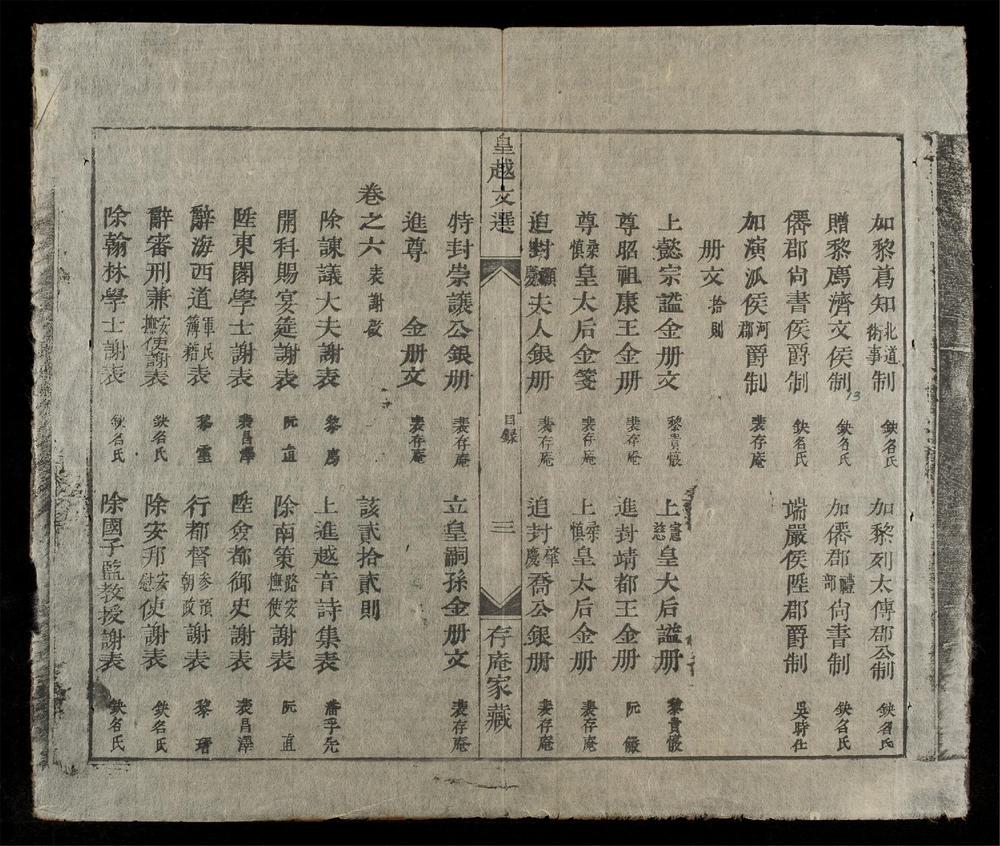 加黎葛知北道衛事制 鈌名氏 加黎列太傅郡公制 鈌名氏
贈黎廌濟文侯制 鈌名氏 加僊郡禮部尙書制 鈌名氏
13
僊郡尙書侯爵制 鈌名氏 端嚴侯陞郡爵制 吳時仕
加演泒侯河郡爵制 裴存庵
册文拾則
上懿宗謚金册文 黎貴惇 上憲慈皇太后謚册 黎貴惇
尊昭祖康王金册 裴存庵 進封靖都王金册 阮儼
尊柔慎皇太后金箋 裴存庵 上柔慎皇太后金册 裴存庵
追封夫人銀册 裴存庵 追封肇慶喬公銀册 裴存庵
皇越文選
目錄
三
存庵家藏
特封崇讓公銀册 裴存庵 立皇嗣孫金册文 裴存庵
進尊 金册文 裴存庵
卷之六表謝啟 該貳拾貳則
除諫議大夫謝表 黎廌 上進越音詩集表 潘孚先
開科賜宴筵謝表 阮直 除南策路安撫使謝表 阮直
陞東閣學士謝表 裴昌澤 陞僉都御史謝表 裴昌澤
辭海西道軍民簿籍表 黎靈 行都督參預朝政謝表 黎
辭審刑兼安撫使謝表 鈌名氏 除安邦安慰使謝表 鈌名氏
除翰林學士謝表 鈌名氏 除國子監教授謝表 鈌名氏